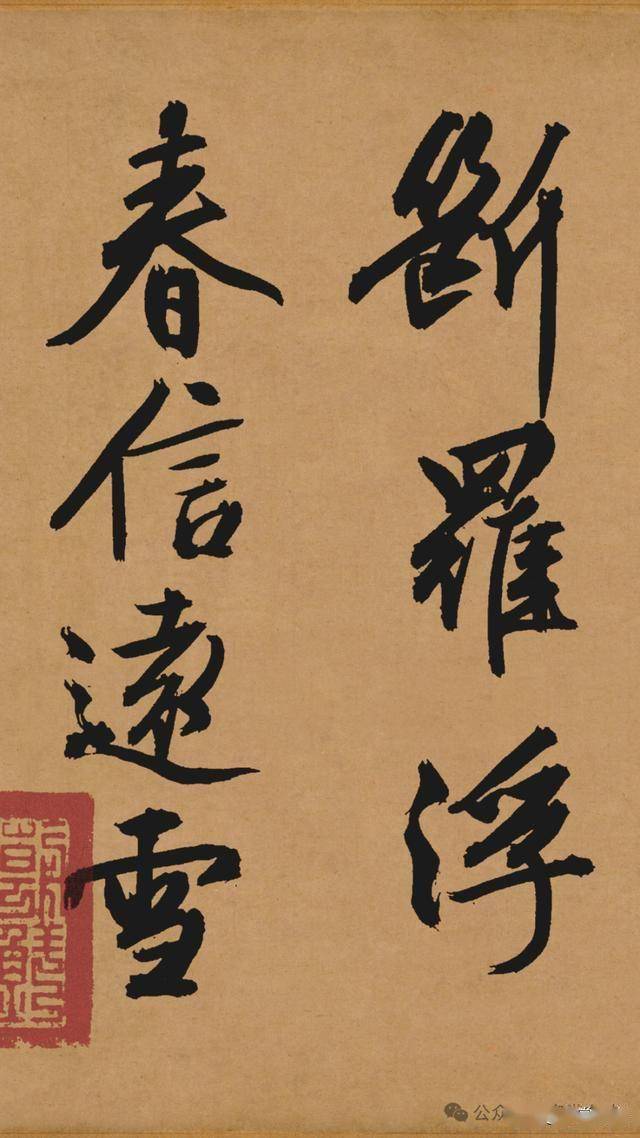 斷羅浮
春信遠雪
公众